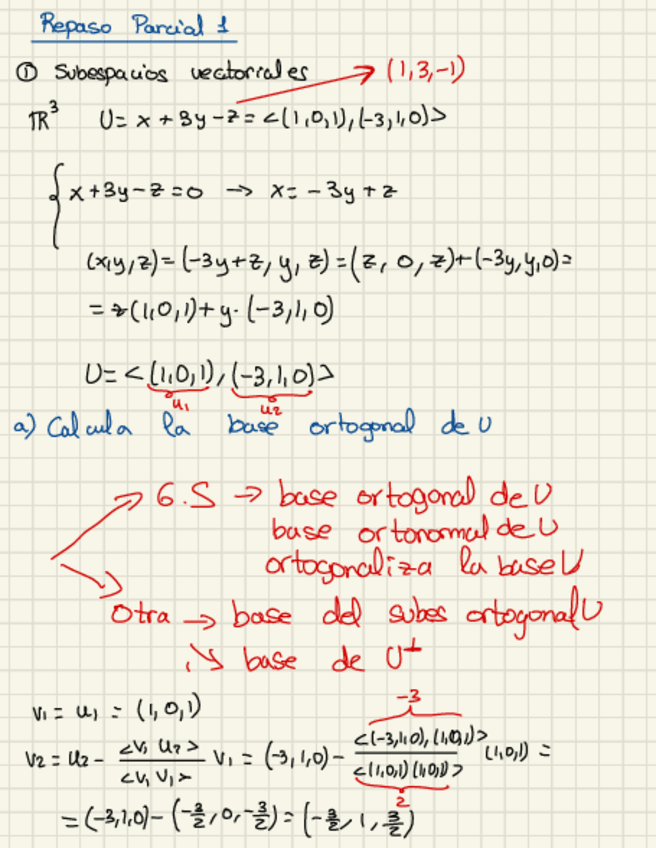 Repaso Parcial 1
① Subespacios vectoriales → (1,3,-1)
ℝ³ U= x + 3y - z = <(1,0,1),(-3,1,0)>
{ x+3y-z=0 → x= -3y + z
(x,y,z)=(-3y+z, y, z)=(z, 0, z)+(-3y,y,0)=
= z(1,0,1)+y·(-3,1,0)
U= <(1,0,1),(-3,1,0)>
u₁ u₂
a) Calcula la base ortogonal de U
G.S → base ortogonal de U
base ortonormal de U
ortogonaliza la base U
Otra → base del subes ortogonal U
↘ base de U⊥
v₁ = u₁ = (1,0,1)
-3
v₂ = u₂ - <v₁ u₂>/<v₁ v₁> v₁ = (-3,1,0) - <(-3,1,0),(1,0,1)>/<(1,0,1)(1,0,1)> (1,0,1) =
2
= (-3,1,0) - (-3/2, 0, -3/2) = (-3/2, 1, 3/2)